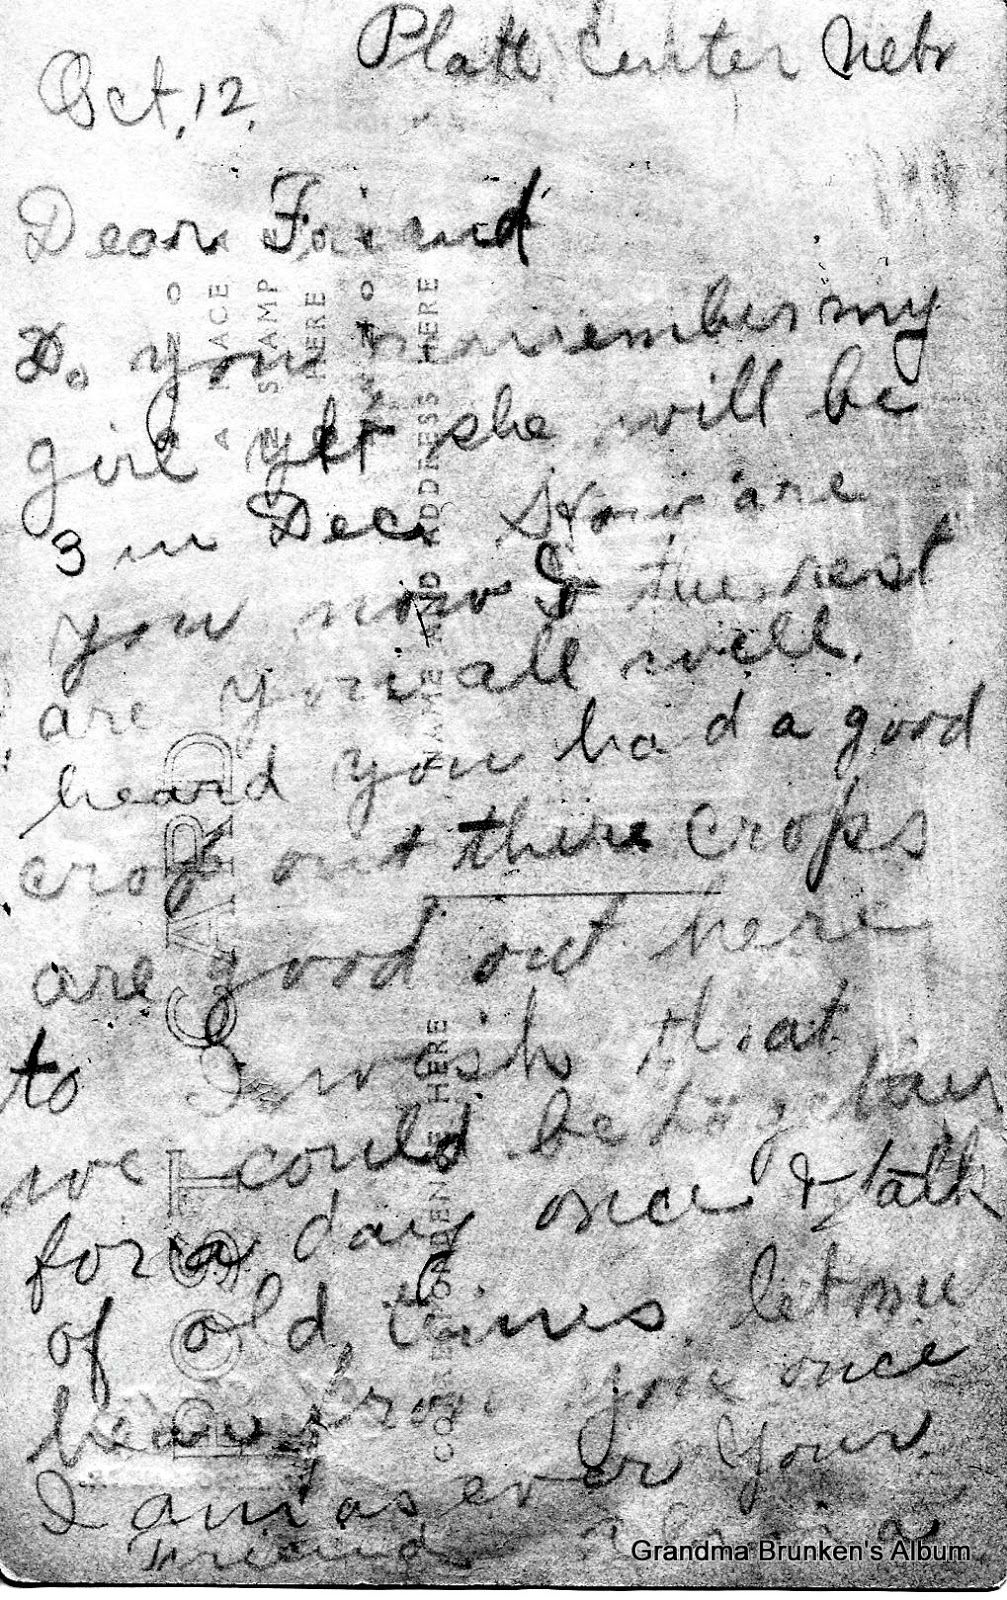 Platt Center Nebr
Oct, 12,
Dear Friend
Do you remember my
girl yet she will be
3 in Dec. How are
you now & the rest
are you all well.
heard you had a good
crop out there crops
are good out here
to I wish that
we could be together
for a day once & talk
of old times. let me
hear from you once
I am as ever your
Friend
POST CARD
PLACE
STAMP
HERE
NAME AND ADDRESS HERE
CORRESPONDENCE HERE
Grandma Brunken's Album